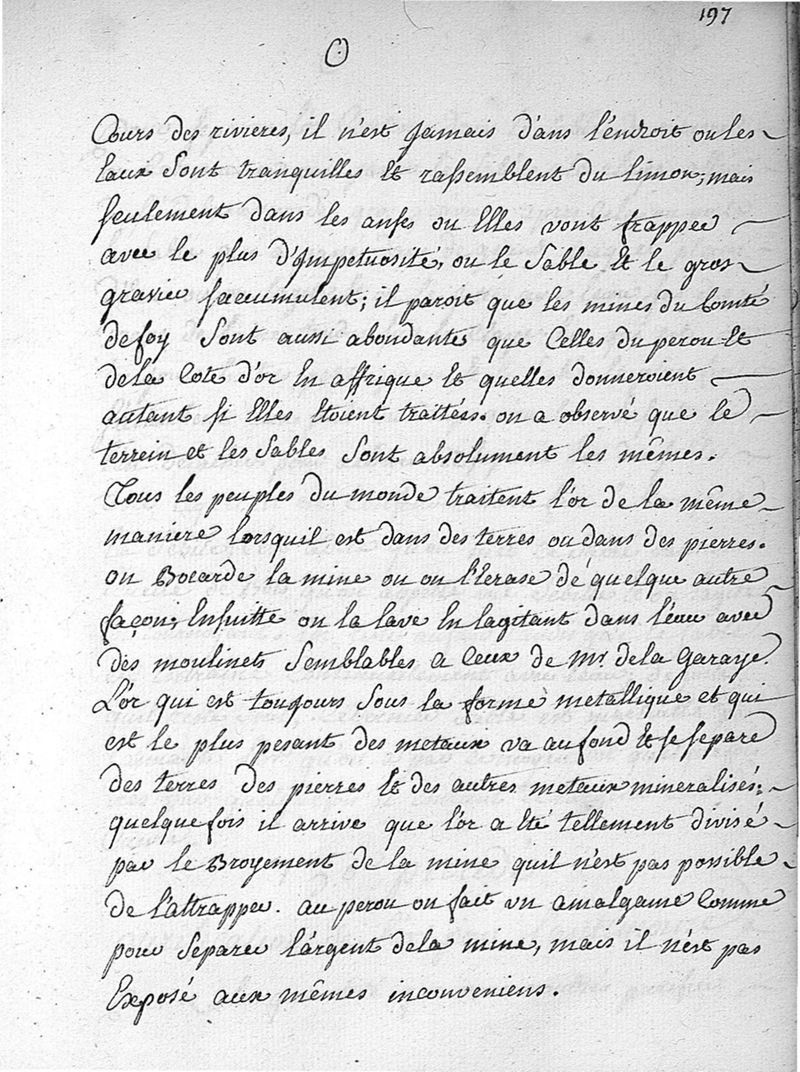 197
O
Cours des rivieres, il n'est Jamais d'ans l'endroit ou les
Eaux Sont tranquilles Et rassemblent du limon; mais
seulement dans les anses ou Elles vont frapper
avec le plus d'Impetuosité, ou le Sable Et le gros
gravier s'accumulent; il paroit que les mines du Comté
de foy Sont aussi abondantes que Celles du perou Et
de la Cote d'or En affrique Et quelles donneroient
autant si Elles Etoient traittés. on a observé que le
terrein et les Sables Sont absolument les mêmes.
Tous les peuples du monde traitent l'or de la même
maniere lorsquil est dans des terres ou dans des pierres.
on Bocarde la mine ou on l'Ecrase de quelque autre
façon; Ensuitte on la lave En lagitant dans l'eau avec
des moulinets Semblables a Ceux de Mr. de la Garaye.
L'or qui est toujours Sous la forme metallique et qui
est le plus pesant des metaux va au fond Et se separe
des terres des pierres Et des autres metaux mineralisés;
quelque fois il arrive que l'or a Eté tellement divisé
par le Broyement de la mine quil n'est pas possible
de l'attrapper. au perou on fait un amalgame Comme
pour Separer l'argent de la mine, mais il n'est pas
Exposé aux mêmes inconveniens.